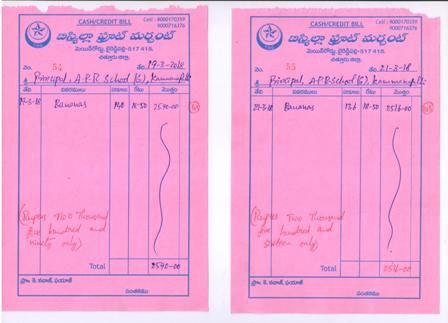 CASH/CREDIT BILL
Cell : 9000170359
9000716376
బిస్మిల్లా ఫ్రూట్ మర్చంట్
మెయిన్‌రోడ్డు, బైరెడ్డిపల్లి-517 415.
చిత్తూరు జిల్లా.
నెం. 54
తేది. 19-3-2018
Principal, A.P.R School (G),
తేది వివరములు రేటు మొత్తం
19-3-18 Bananas 140 18-50 2590-00
(Rupees Two Thousand
five hundred and
ninety only)
Total 2590-00
సంతకము
CASH/CREDIT BILL
Cell : 9000170359
9000716376
బిస్మిల్లా ఫ్రూట్ మర్చంట్
మెయిన్‌రోడ్డు, బైరెడ్డిపల్లి-517 415.
చిత్తూరు జిల్లా.
నెం. 55
తేది. 21-3-18
Principal, A.P.R School (G),
తేది వివరములు రేటు మొత్తం
21-3-18 Bananas 136 18-50 2516-00
(Rupees Two Thousand
five hundred and
sixteen only)
Total 2516-00
సంతకము